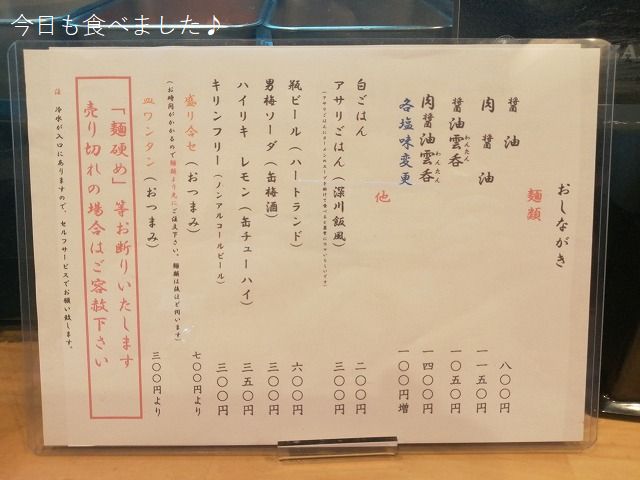 今日も食べました♪
おしながき
麺類
醤油 八〇〇円
肉醤油 一一五〇円
醤油雲呑 わんたん 一〇五〇円
肉醤油雲呑 わんたん 一四〇〇円
各塩味変更 一〇〇円増
他
白ごはん 二〇〇円
アサリごはん（深川飯風） 三〇〇円
瓶ビール（ハートランド） 六〇〇円
男梅ソーダ（缶梅酒） 三〇〇円
ハイリキ レモン（缶チューハイ） 三五〇円
キリンフリー（ノンアルコールビール） 三〇〇円
盛り合せ（おつまみ） 七〇〇円より
（お時間がかかるので麺類より先にご注文下さい。麺類は後ほど伺います）
皿ワンタン（おつまみ） 三〇〇円より
「麺硬め」等お断りいたします
売り切れの場合はご容赦下さい
冷水が入口にありますので、セルフサービスでお願い致します。